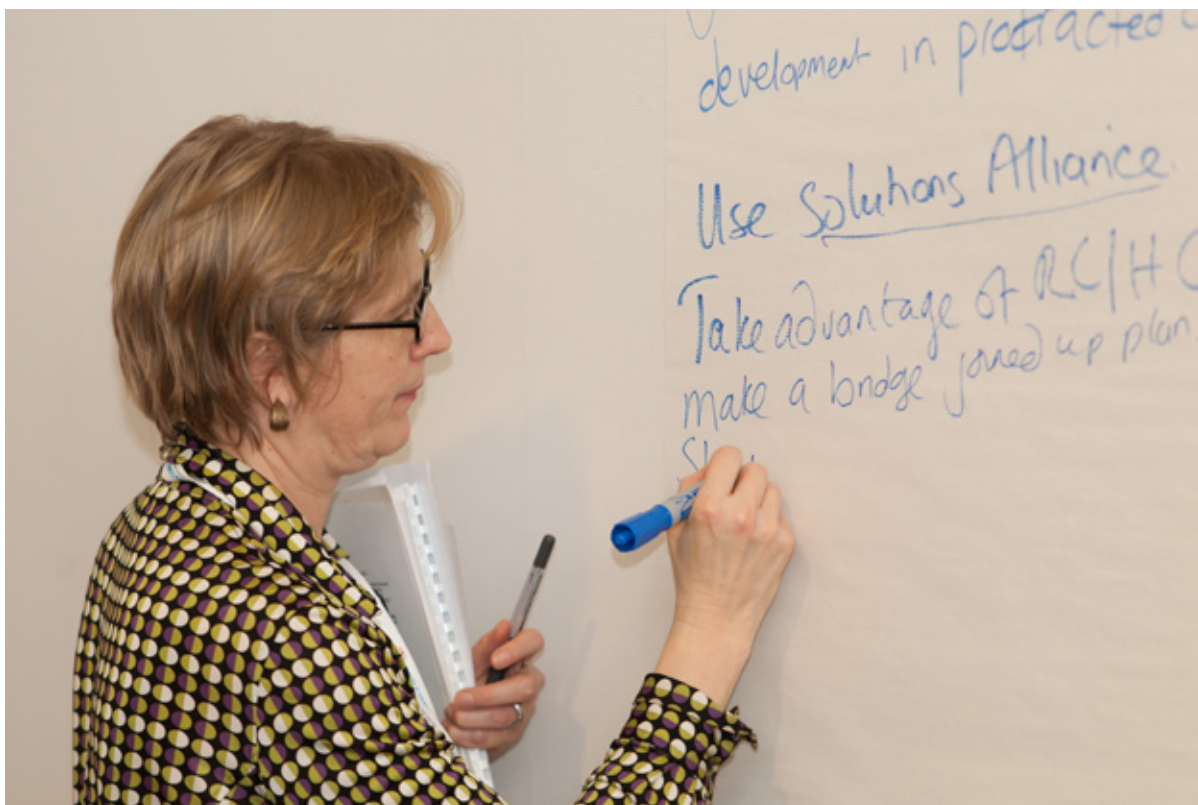 development in protracted
Use Solutions Alliance
Take advantage of RC/HC
make a bridge joined up plan